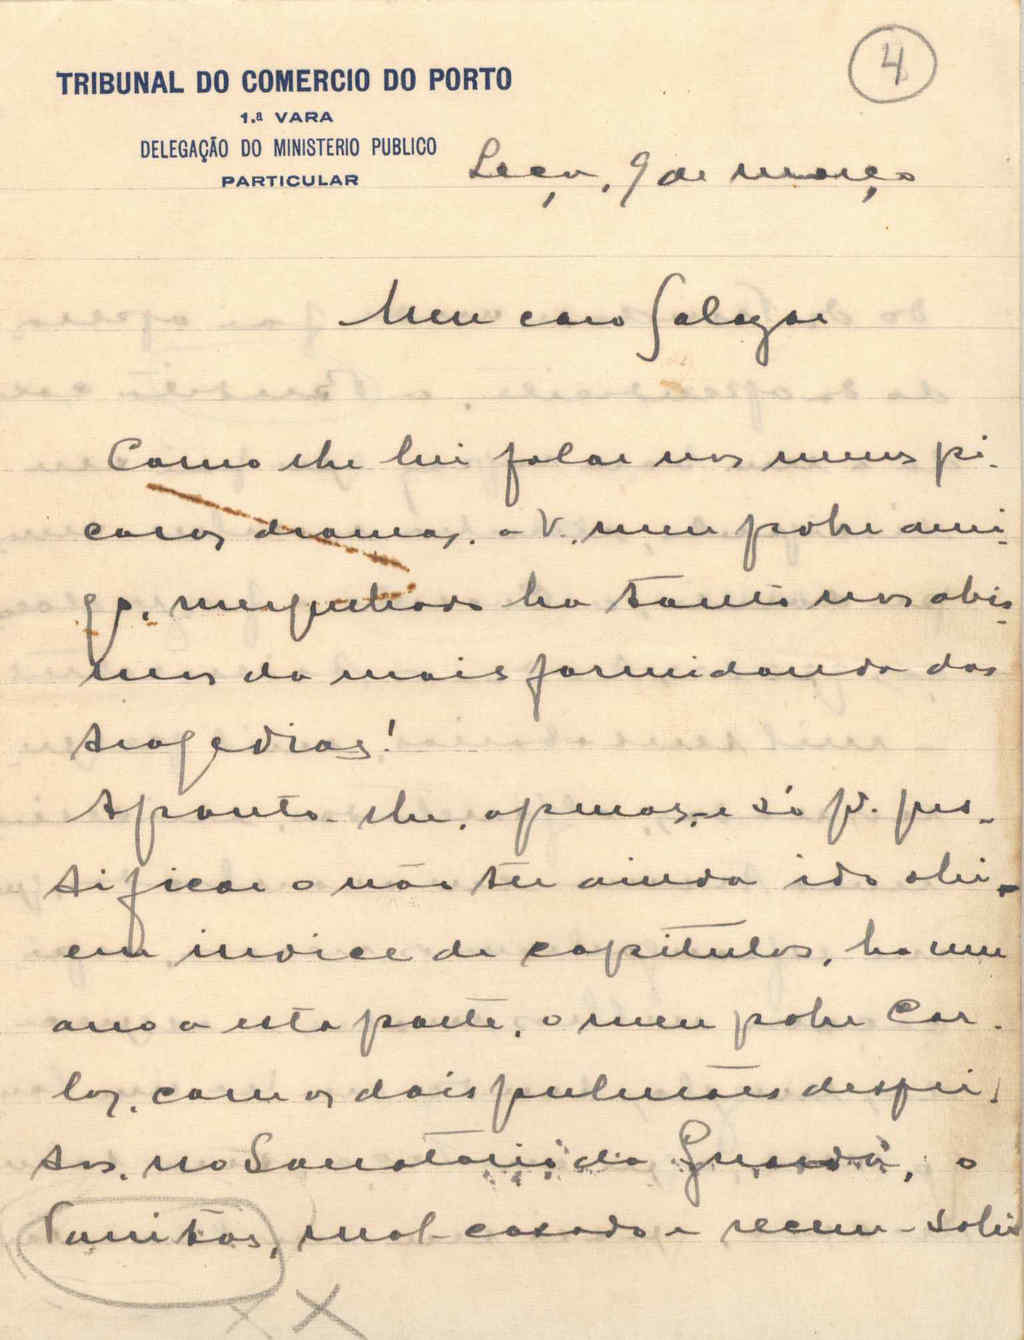 4
TRIBUNAL DO COMERCIO DO PORTO
1.ª VARA
DELEGAÇÃO DO MINISTERIO PUBLICO
PARTICULAR
Leça, 9 de março
Meu caro Salazar
Como lhe hei falar nos meus pi-
caros dramas, a V., meu pobre ami-
go, mergulhado ha tanto nos abis-
mos da mais formidanda das
tragedias!
Aponto-lhe, apenas, e só p.ª jus-
tificar o não ter ainda ido ahi,
em indice de capitulos, ha um
ano a esta parte, o meu pobre Car-
los, com os dois pulmões desfei-
tos, no Sanatorio da Guarda, o
mal-casado e recem-sahi